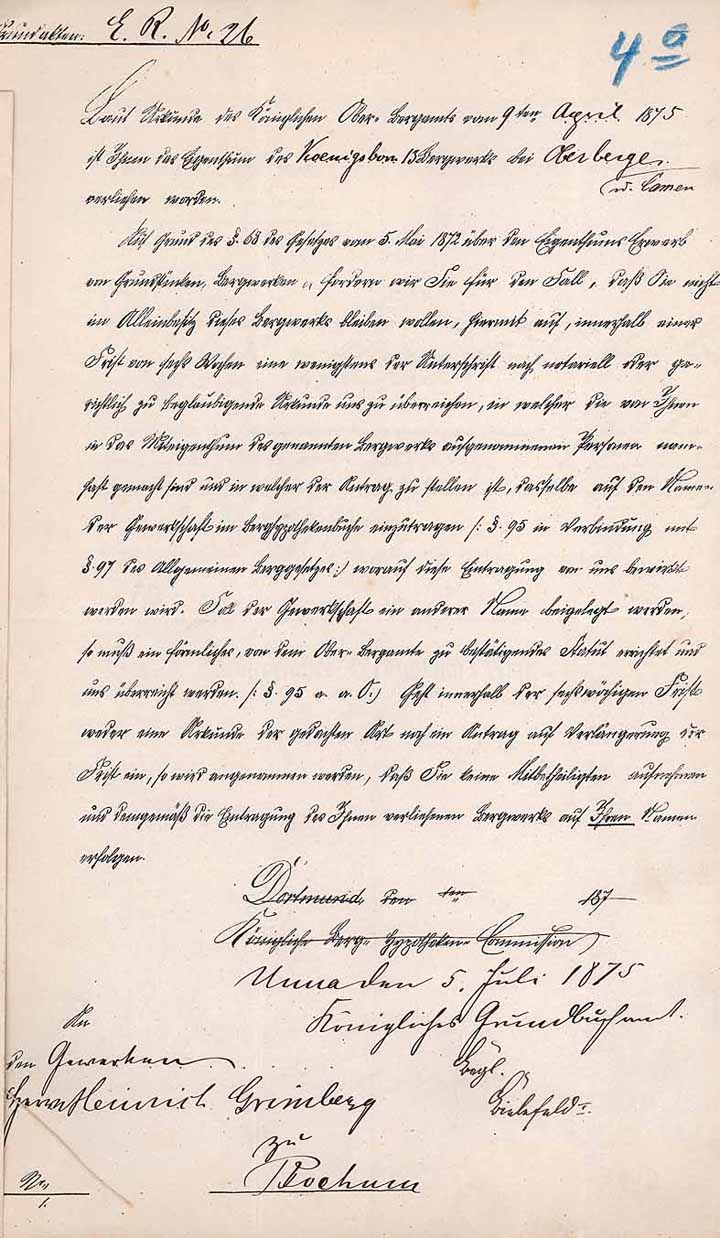 Grundakten: E. R. No. 26
4 a
Laut Urkunde des Königlichen Ober-Bergamts vom 9ten April 1875
ist Ihnen das Eigenthum des Koenigsborn 13 Bergwerks bei Oberberge
verliehen worden.
Auf Grund des §. 68 des Gesetzes vom 5. Mai 1872 über den Eigenthums Erwerb
von Grundstücken, Bergwerken fordern wir Sie für den Fall, daß Sie nicht
im Alleinbesitz dieses Bergwerks bleiben wollen, hiermit auf, innerhalb einer
Frist von sechs Wochen eine wenigstens der Unterschrift nach notariell oder ge-
richtlich zu beglaubigende Urkunde uns zu überreichen, in welcher die von Ihnen
in das Miteigenthum des genannten Bergwerks aufgenommenen Personen nam-
haft gemacht sind und in welcher der Antrag zu stellen ist, dasselbe auf den Namen
der Gewerkschaft im Berghypothekenbuche einzutragen /: §. 95 in Verbindung mit
§. 97 des Allgemeinen Berggesetzes:/ worauf diese Eintragung von uns bewirkt
werden wird. Soll der Gewerkschaft ein anderer Name beigelegt werden,
so muß ein förmliches, von dem Ober-Bergamte zu bestätigendes Statut errichtet und
uns überreicht werden. /: §. 95 a. a. O:/ Geht innerhalb der sechswöchigen Frist
weder eine Urkunde der gedachten Art noch ein Antrag auf Verlängerung der
Frist ein, so wird angenommen werden, daß Sie keine Mitbetheiligten aufnehmen
und demgemäß die Eintragung des Ihnen verliehenen Bergwerks auf Ihren Namen
erfolgen.
Dortmund, den ten 187
Königliche Berg-Hypotheken-Commission
Unna den 5. Juli 1875
Königliches Grundbuchamt.
An
den Gewerken
Herrn Heinrich Grimberg
Bielefeld
zu
Bochum
No
1.